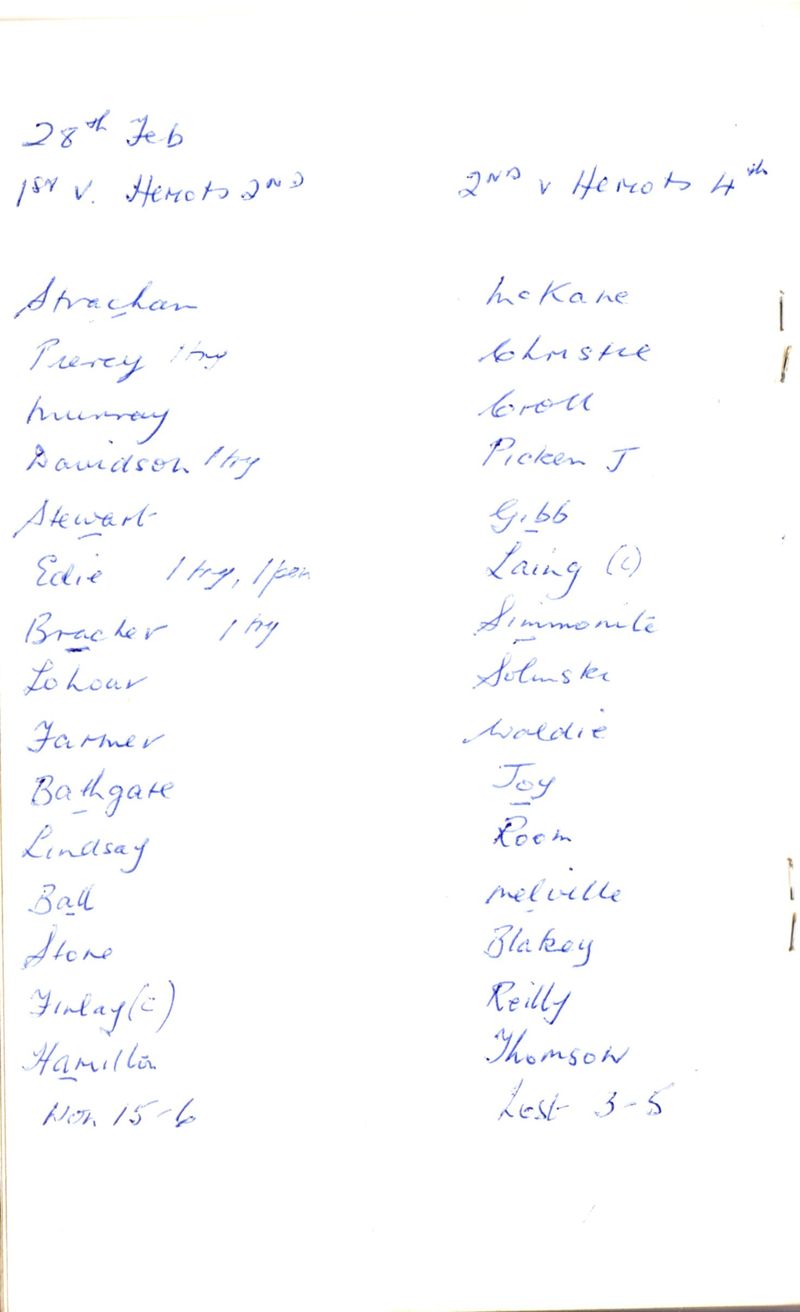 28th Feb
1st v. Heriots 2ND
Strachan
Piercy 1 try
Murray
Davidson 1 try
Stewart
Edie 1 try, 1 pen
Bracher 1 try
Lohoar
Farmer
Bathgate
Lindsay
Ball
Stone
Finlay (c)
Hamilton
Won 15-6
2ND v Heriots 4th
McKane
Christie
Croll
Picken J
Gibb
Laing (c)
Simmonite
Solinski
Waldie
Joy
Room
Melville
Blakey
Reilly
Thomson
Lost 3-5